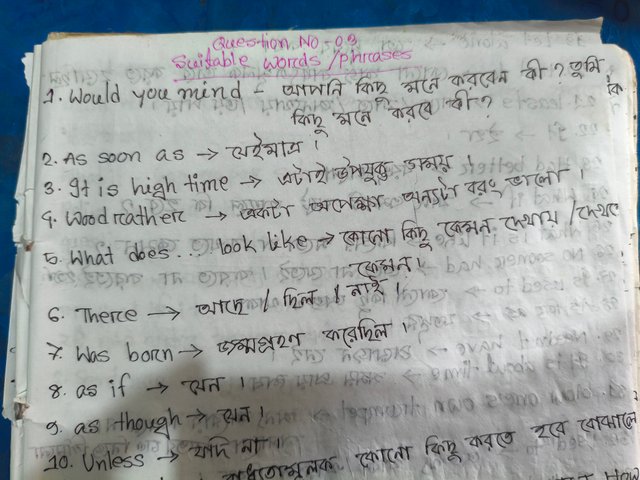 Question No - 03
Suitable words/phrases
1. Would you mind - আপনি কিছু মনে করবেন কী? তুমি কি
কিছু মনে করবে কী?
2. As soon as → যেইমাত্র।
3. It is high time → এটাই উপযুক্ত সময়।
4. Wood rather → একটা অপেক্ষা অন্যটা বরং ভালো।
5. What does... look like → কোনো কিছু কেমন দেখায়/দেখতে
কেমন।
6. There → আছে/ছিল/নাই।
7. Was born → জন্মগ্রহণ করেছিল।
8. as if → যেন।
9. as though → যেন।
10. Unless → যদি না।
বাধ্যতামূলক কোনো কিছু করতে হবে বোঝালে